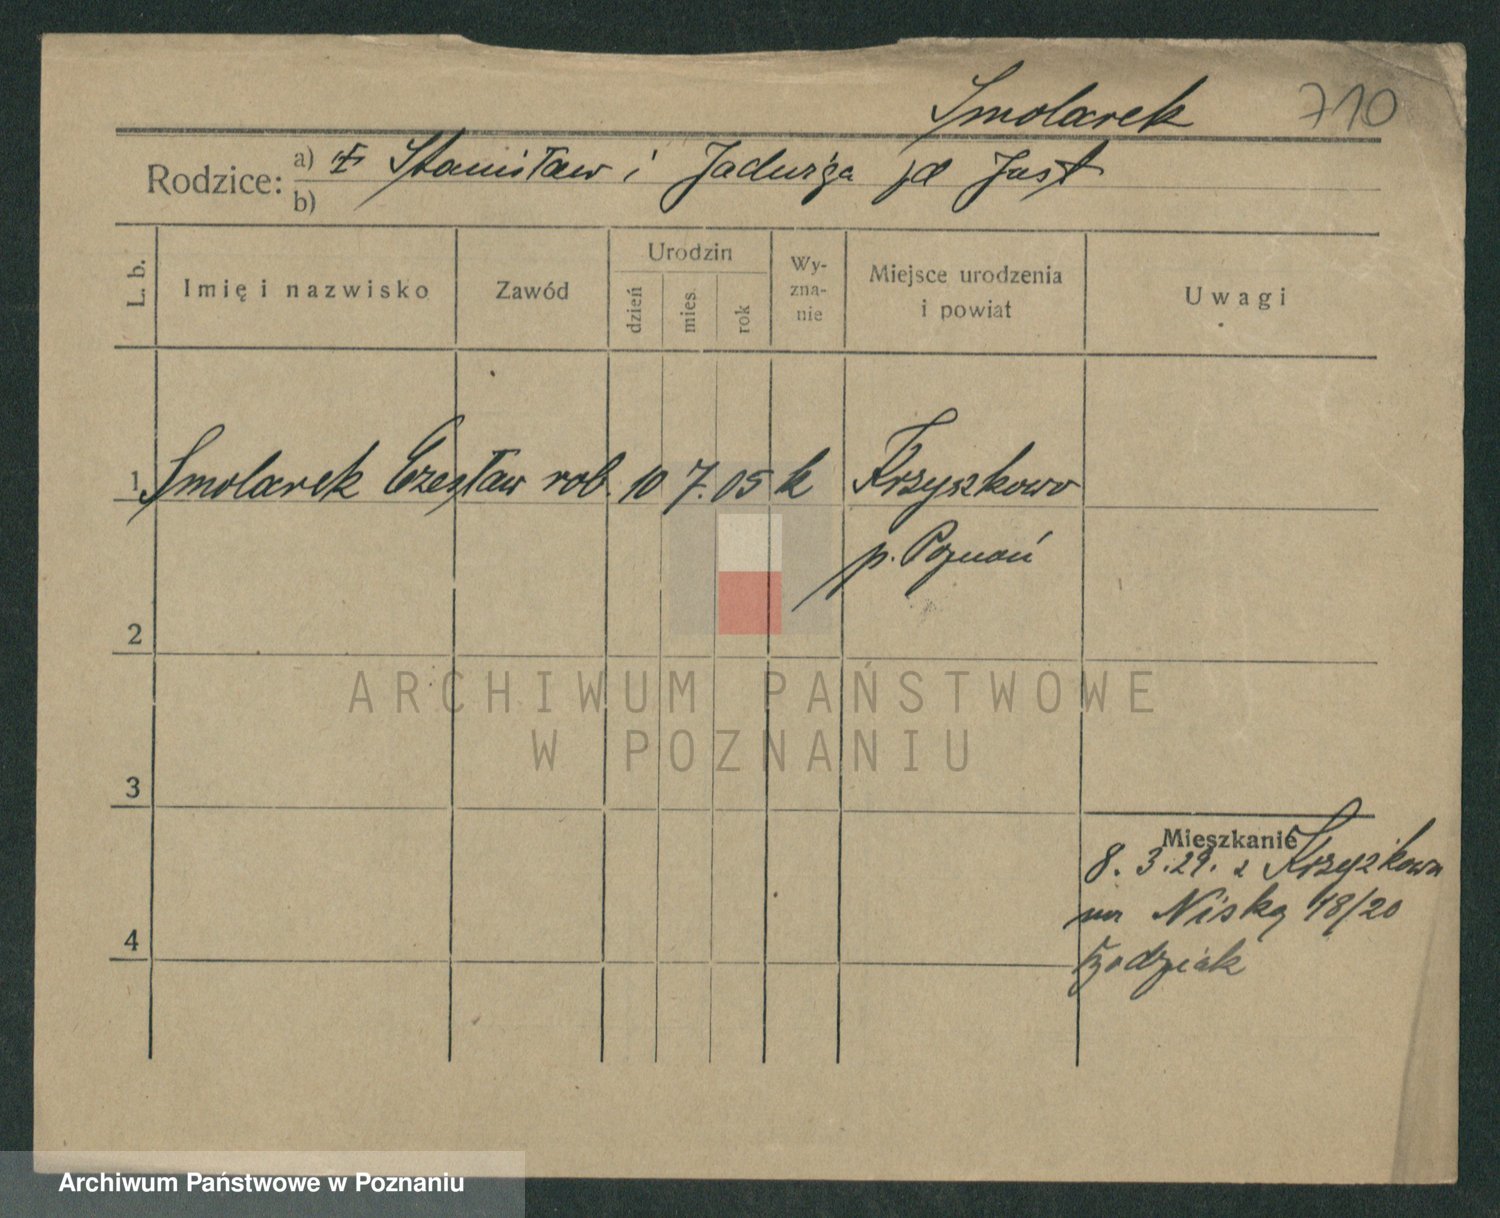 Smolarek 710
Rodzice: a) Stanisław i Jadwiga Just
b)
L. b. Imię i nazwisko Zawód Urodzin dzień mies. rok Wy-zna-nie Miejsce urodzenia i powiat Uwagi
1 Smolarek Czesław rob. 10 7. 05 k Krzyszkowo
p. Poznań
2
ARCHIWUM PAŃSTWOWE
W POZNANIU
3
Mieszkanie
8. 3. 29. z Krzyszkowa
na Niską 18/20
4
Archiwum Państwowe w Poznaniu